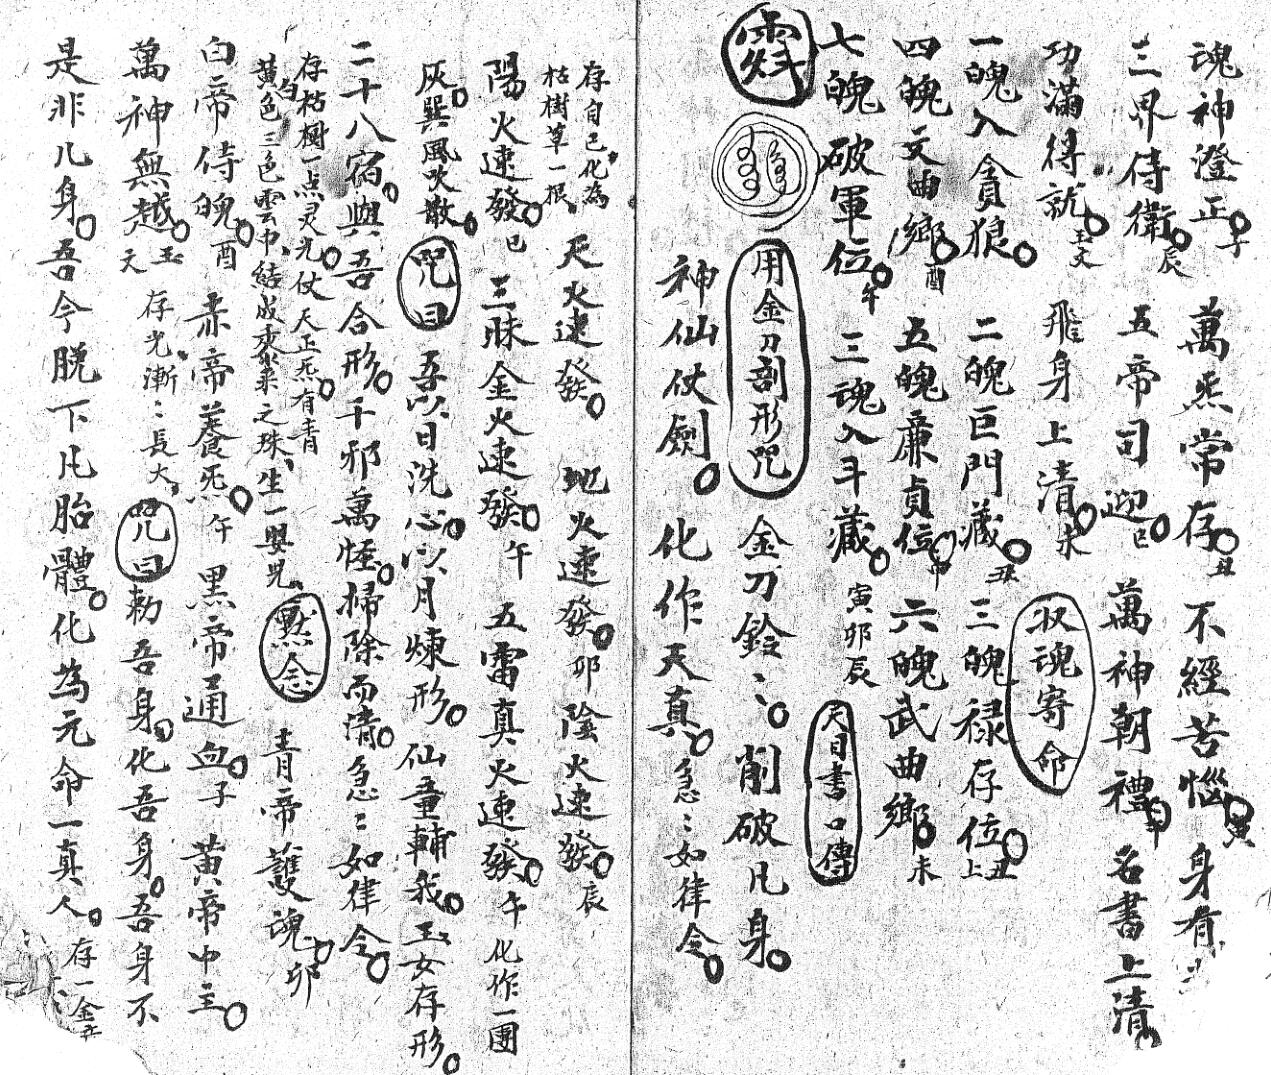 魂神澄正子 萬炁常存丑 不經苦惱寅 身有
三界侍衛辰 五帝司迎巳 萬神朝禮 名書上清
功滿得就玉文 飛身上清未 收魂寄命
一魄入貪狼 二魄巨門藏丑 三魄祿存位丑上
四魄文曲鄉酉 五魄廉貞位申 六魄武曲鄉未
七魄破軍位午 三魂入斗藏寅卯辰 天目書口傳
用金刀剖形咒 金刀鈴〻 削破凡身
神仙仗劍 化作天真 急〻如律令
存自己化為
枯樹草一根 天火速發 地火速發卯 陰火速發辰
陽火速發巳 三昧金火速發午 五雷真火速發午 化作一團
灰巽風吹散 咒曰 吾以日洗心 以月煉形 仙童輔我 玉女存形
二十八宿 與吾合形 千邪萬怪 掃除而清 急〻如律令
存枯樹一点灵光仗天正炁有青
白黃色三色雲中結成黍米之珠生一嬰兒 默念 青帝護魂卯
白帝侍魄酉 赤帝養炁午 黑帝通血子 黃帝中主
萬神無越玉文 存光漸〻長大 咒曰 勅吾身 化吾身 吾身不
是非凡身 吾今脱下凡胎體 化為元命一真人 存一金